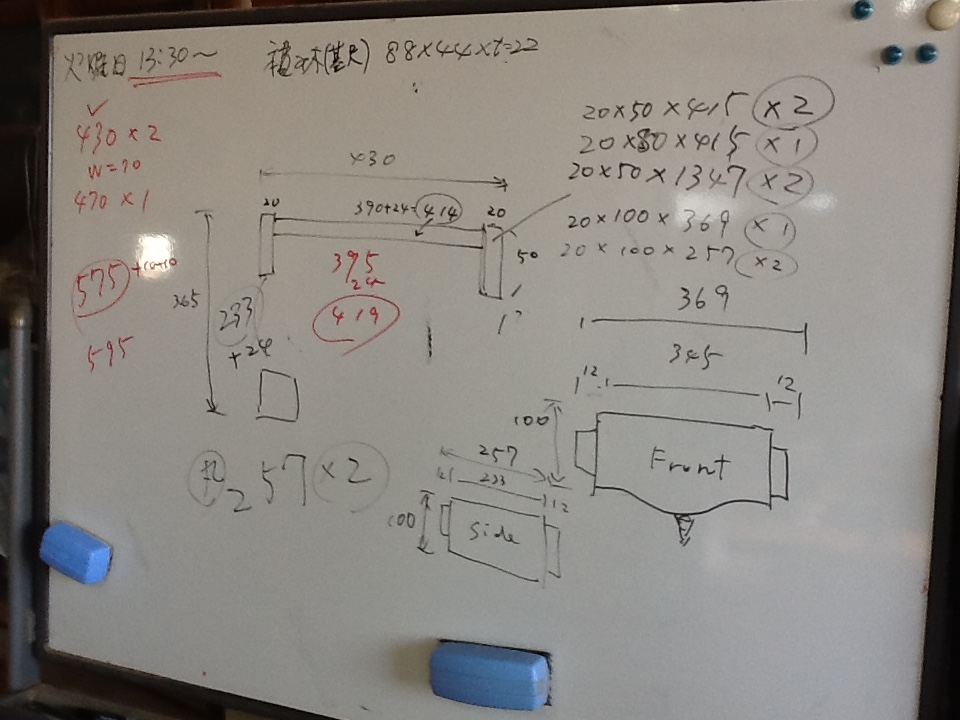 火曜日 13:30〜
積み木(基尺) 88×44×t=22
430×2
W=70
470×1
575 +10+10
595
20×50×415 ×2
20×80×415 ×1
20×50×1347 ×2
20×100×369 ×1
20×100×257 ×2
430
20
390+24=414
20
50
395
24
419
365
233
+24
257 ×2
369
345
12
12
100
Front
257
233
12
100
Side